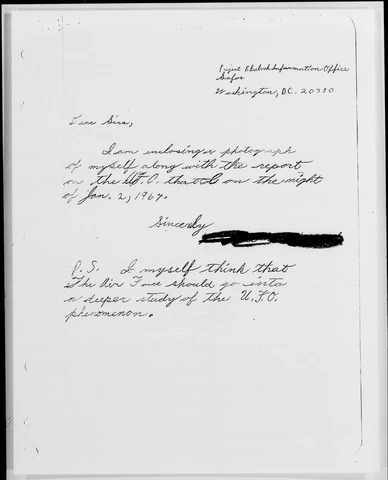 Project Bluebook Information Office
Safoi
Washington, D.C. 20330
Dear Sirs,
I am enclosing a photograph
of myself along with the report
on the U.F.O. that I on the night
of Jan. 2, 1967.
Sincerely
P.S. I myself think that
The Air Force should go into
a deeper study of the U.F.O.
phenomenon.